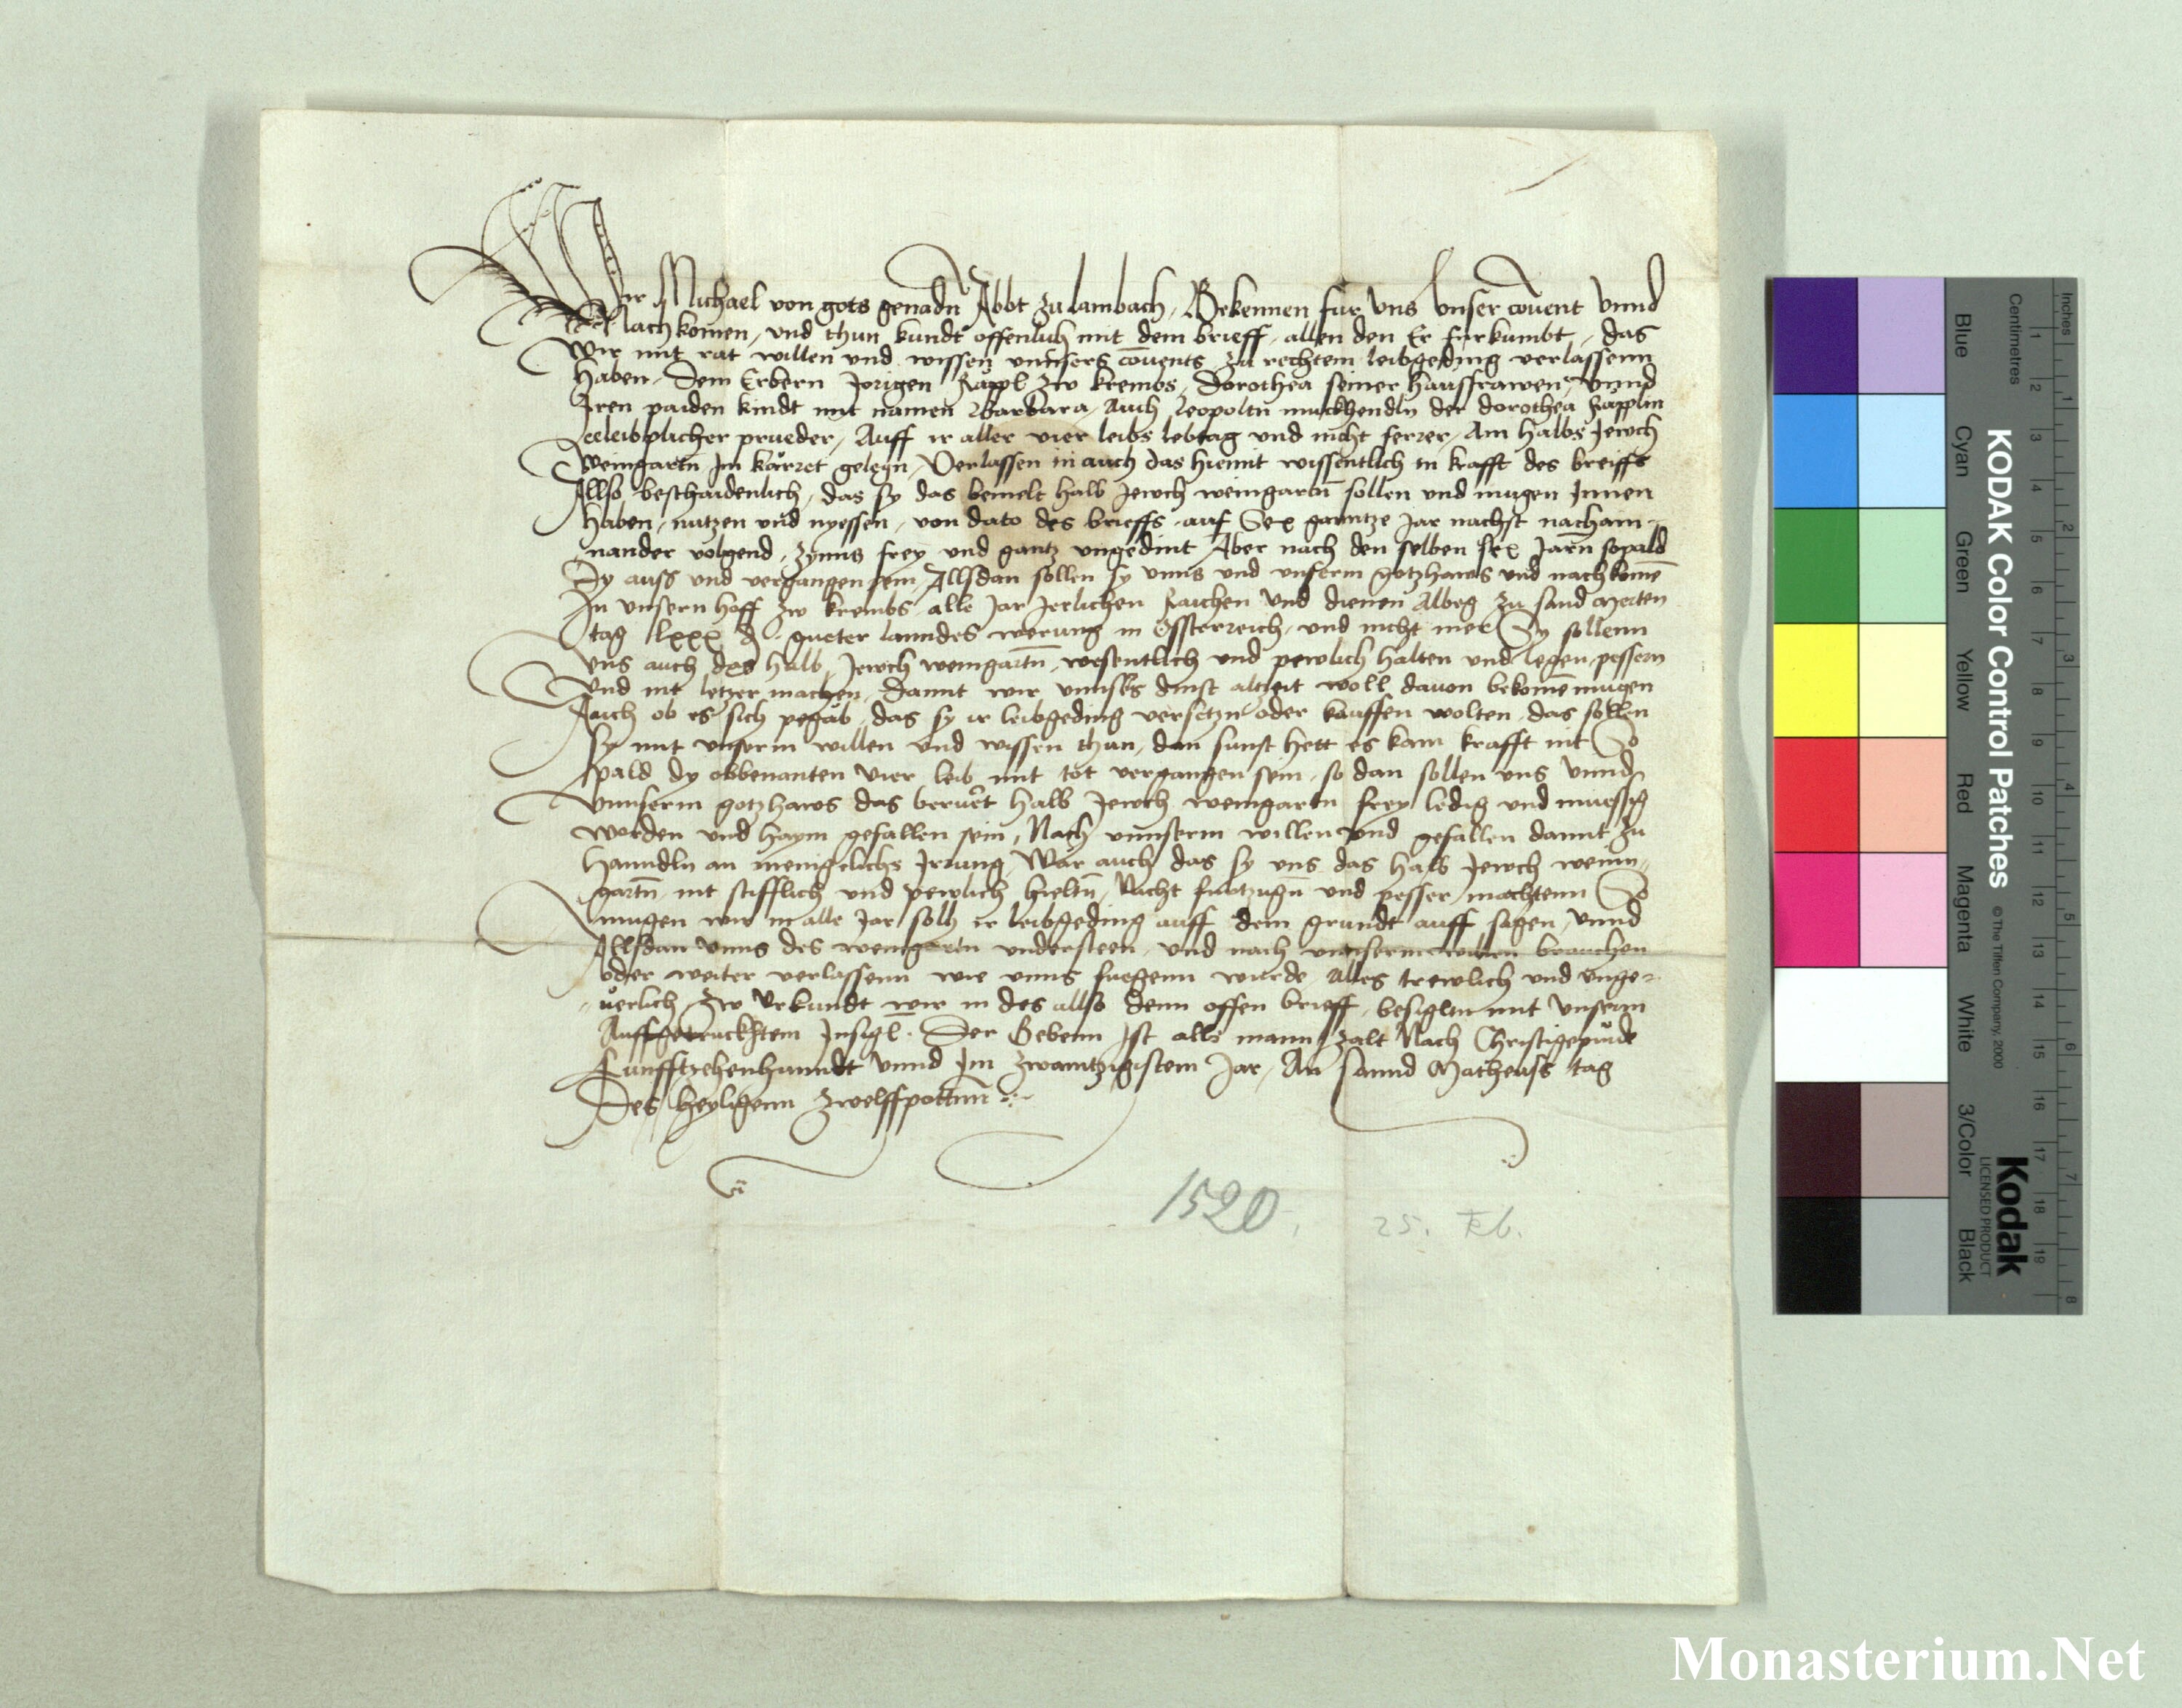 Wir Michael von gots genadn Abbt zu lambach, Bekennen fur Uns Unser covent Unnd
Nachkomen, und thun kundt offenlich mit dem brieff, allen den Er furkumbt, das
Wir mit rat willen und wissen unnsers covents zu rechtem leibgeding verlassenn
haben, Dem Erbern Jorigen Räppl zw krembs, Dorothea seiner haussfrawen, Unnd
Iren paiden kindt mit namen Barbara, Auch Leopoltn muckhendln der dorothea Rapplin
eeleiblicher prueder, Auff ir aller vier leibs lebtag und nicht ferrer, Am halbs Jewch
Weingartn Im kärret gelegn, Verlassen in auch das hiemit wissentlich in krafft des breiffs
Allso beschaidenlich, das sy das bemelt halb Jewch weingartn sollen und mugen Innen
haben, nutzen und nyessen, von dato des brieffs auf Sex ganntze Jar nachst nachain-
nander volgend, zynns frey und gantz ungedint Aber nach den selben sex Jarn sopald
Dy auss und vergangen sein, Allsdan sollen sy unns und unserm gotzhaws und nachkomē
In unsern hoff zw krembs alle Jar Jerlichen Raichen Und dienen Albeg zu sand Merten
tag lxxx d gueter lanndes werung in Össterreich, und nicht mer Sy sollenn
uns auch das halb Jewch weingartn, wesentlich und pewlich halten und legen, pessern
Und nit letzer machen, Damit wir unnsers dinst altzeit woll davon bekomē mugen
Auch ob es sich pegäb, das sy ir leibgeding versetzn oder kauffen wolten, das sollen
Sy mit unserm willen und wissen thun, dan sunst hett es kain krafft nit So
pald dy obbenanten Vier leib mit tot vergangen sein, so dan sollen uns Unnd
Unnserm gotzhaws das beruert halb Jewch weingartn frey ledig und muessig
worden und haym gefallen sein, Nach unnserm willen und gefallen damit zu
hanndln an menigelichs Irrung, Wär auch das sy uns das halb Jewch weinn-
gartn nit stifflich und pewlich hieltn, Nicht furtzugn und pesser machtenn So
mugen wir in alle Jar solh ir leibgeding auff dem grundt auff sagen, Unnd
Allsdan Unns des weingartn understeen, und nach unnserm willen brauchen
oder weiter verlassenn wie unns fuegenn wurde, Alles trewlich und unge-
uerlich, Zw Urkundt wir in des allso denn offen brieff, besigltn mit Unserm
Auffgetruckhtem Insigl. Der Gebenn Ist alls mann zalt Nach Christi gepurde
Funfftzehenhunndt Unnd Im zwaintzigistem Jar, An sannd Matheuss tag
Des heyligenn zwelffpottnn
1520.
25. Feb.
KODAK Color Control Patches
© The Tiffen Company, 2000
Kodak
LICENSED PRODUCT
Inches
1 2 3 4 5 6 7 8
Centimetres
1 2 3 4 5 6 7 8 9 10 11 12 13 14 15 16 17 18 19
Blue
Cyan
Green
Yellow
Red
Magenta
White
3/Color
Black
Monasterium.Net